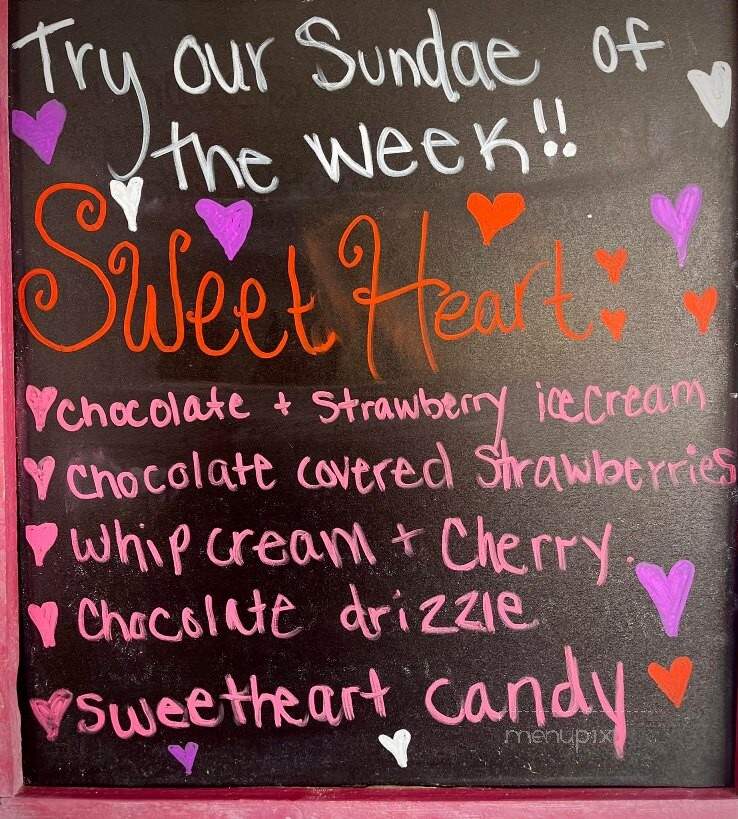 Try our Sundae of
the week!!
Sweet Heart:
chocolate + strawberry icecream
chocolate covered strawberries
whip cream + Cherry.
chocolate drizzle
sweetheart candy
menupix